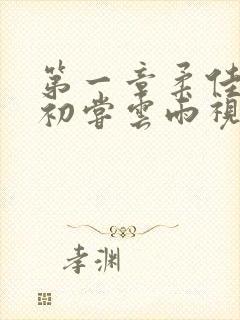 第一章柔佳
初尝云雨视
孝渊